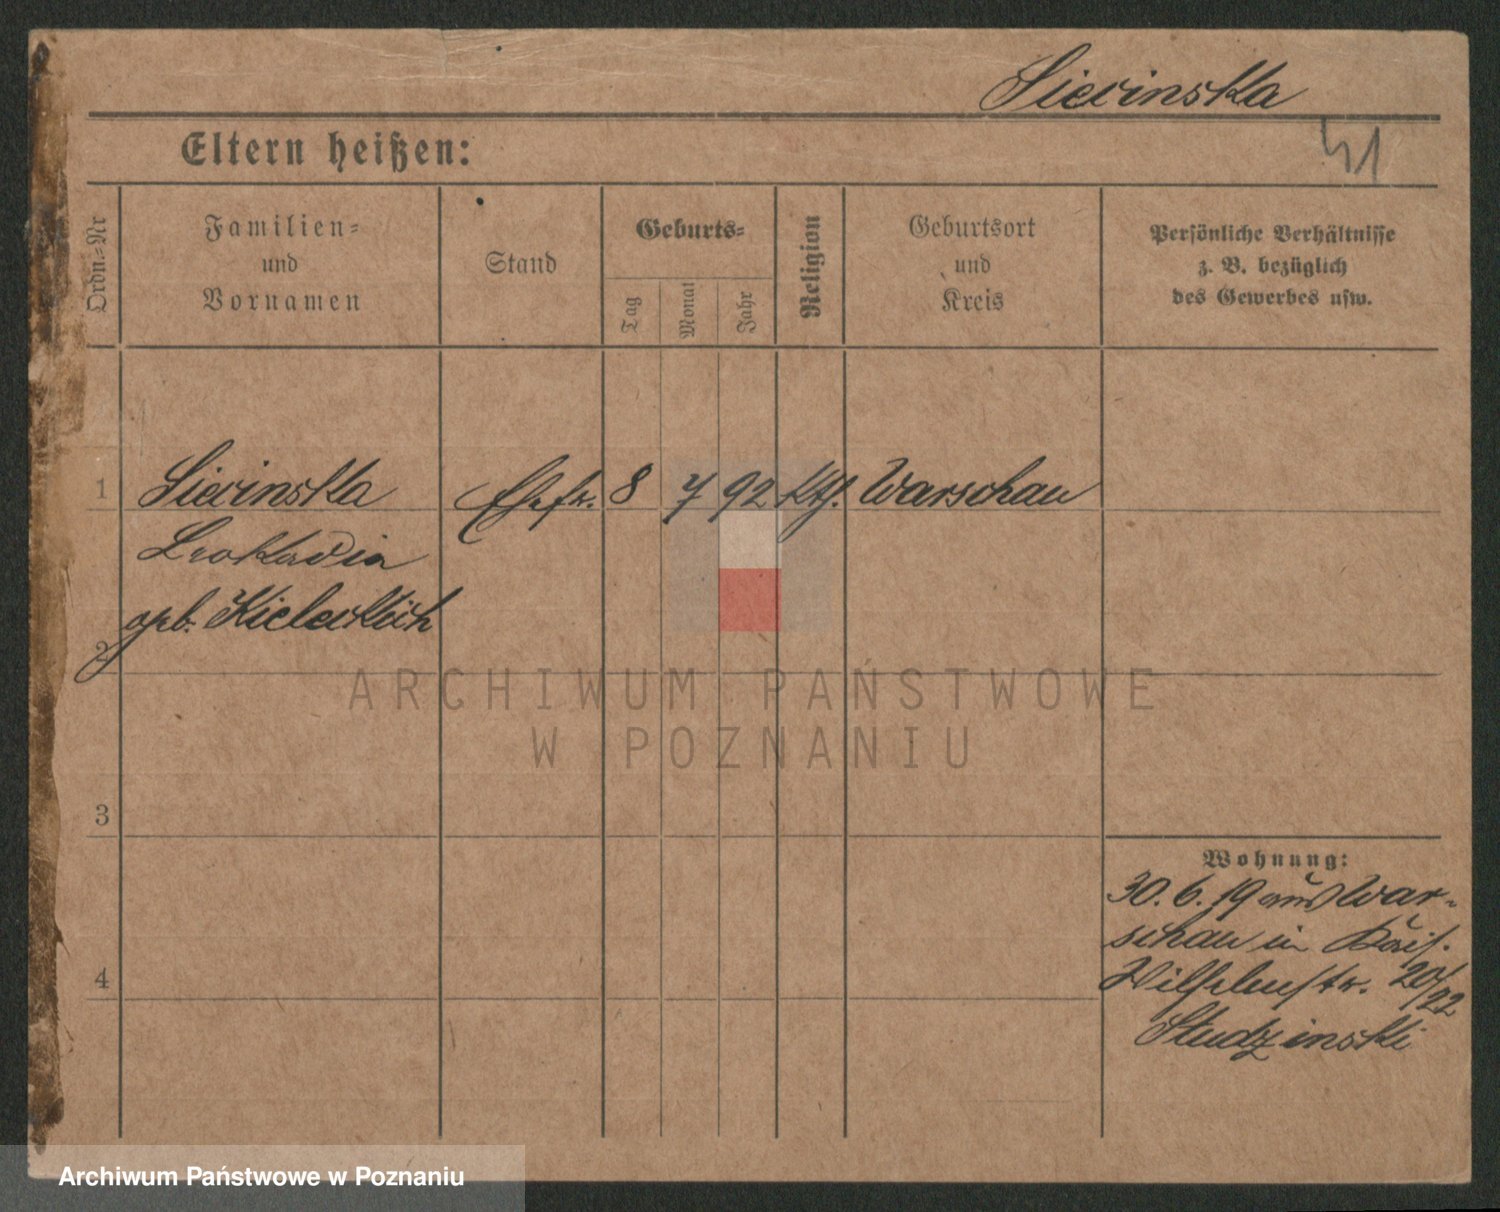 Siecinska
41
Eltern heißen:
Ordn=Nr
Familien=
und
Vornamen
Stand
Geburts=
Tag
Monat
Jahr
Religion
Geburtsort
und
Kreis
Persönliche Verhältnisse
z. B. bezüglich
des Gewerbes usw.
1
Siecinska Ehefr. 8 7 92 Kth. Warschau
Leokadia
geb.
2
3
4
Wohnung:
30. 6. 19 aus War-
schau in Kais.
Wilhelmstr. 20/22
Studzinski
ARCHIWUM PAŃSTWOWE
W POZNANIU
Archiwum Państwowe w Poznaniu